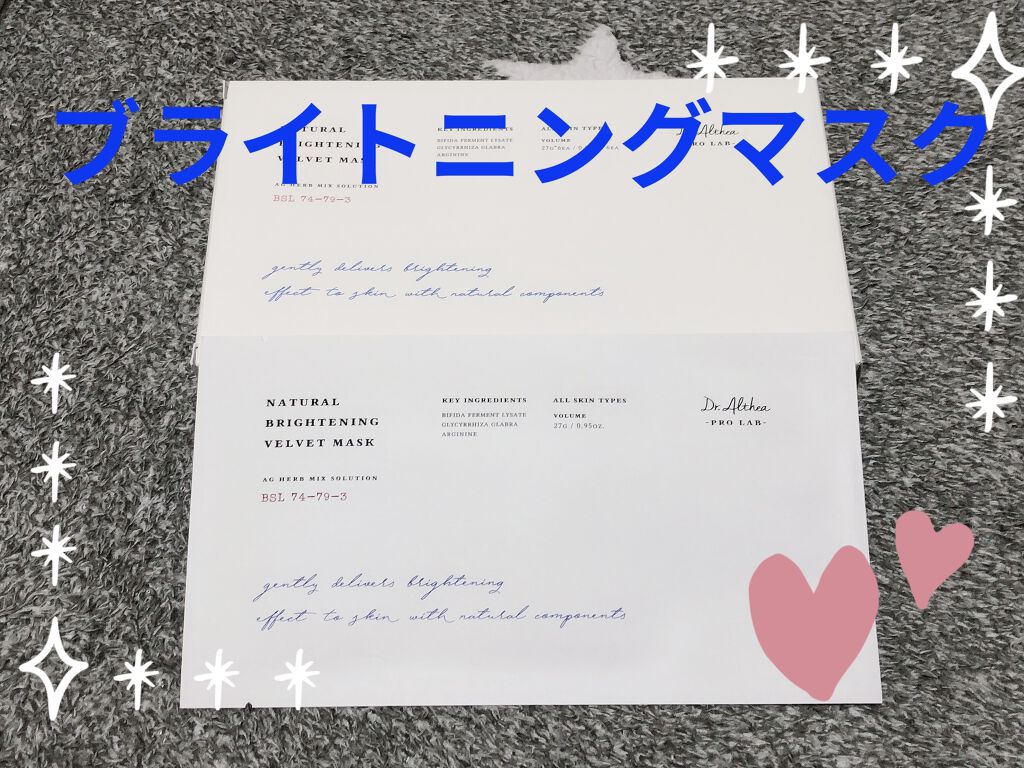 ブライトニングマスク
BRIGHTENING
VELVET MASK
AG HERB MIX SOLUTION
BSL 74-79-3
KEY INGREDIENTS
BIFIDA FERMENT LYSATE
GLYCYRRHIZA GLABRA
ARGININE
ALL SKIN TYPES
VOLUME
Dr. Althea
PRO LAB-
gently delivers brightening
effect to skin with natural components
NATURAL
BRIGHTENING
VELVET MASK
AG HERB MIX SOLUTION
BSL 74-79-3
KEY INGREDIENTS
BIFIDA FERMENT LYSATE
GLYCYRRHIZA GLABRA
ARGININE
ALL SKIN TYPES
VOLUME
27G / 0.95OZ.
Dr. Althea
-PRO LAB-
gently delivers brightening
effect to skin with natural components